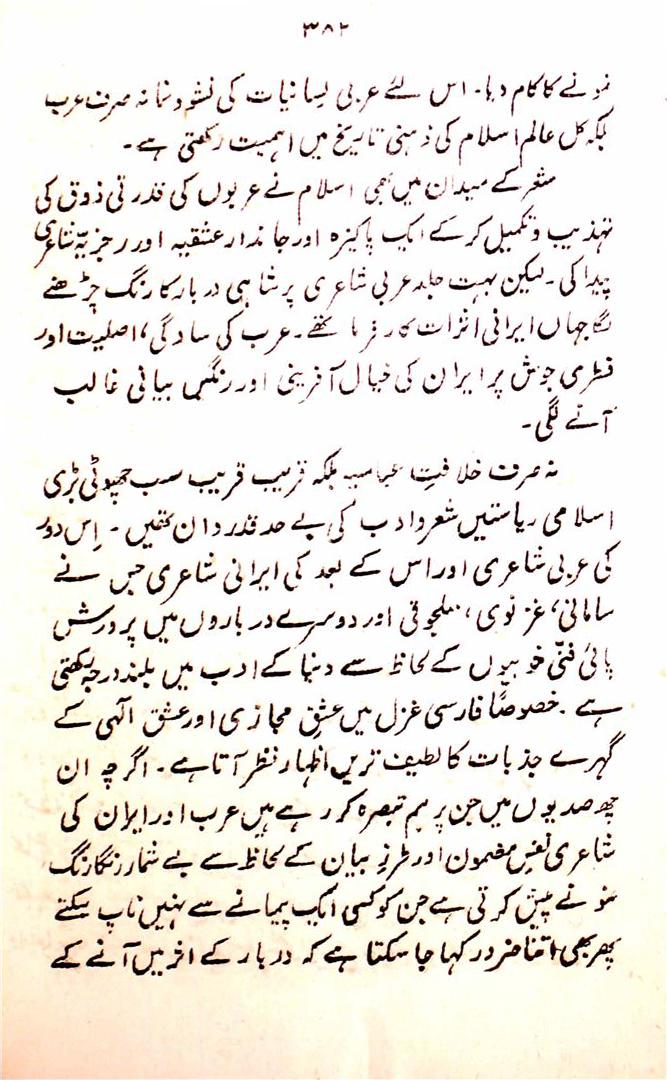 ۳۸۲
نمونے کا کام دیا۔ اس لئے عربی لسانیات کی نشوونما نہ صرف عرب
بلکہ کل عالم اسلام کی ذہنی تاریخ میں اہمیت رکھتی ہے۔
شعر کے میدان میں بھی اسلام نے عربوں کی قدرتی ذوق کی
تہذیب و تکمیل کر کے ایک پاکیزہ اور جاندار عشقیہ اور رجزیہ شاعری
پیدا کی۔ لیکن بہت جلد عربی شاعری پر شاہی دربار کا رنگ چڑھنے
لگا جہاں ایرانی اثرات کارفرما تھے۔ عرب کی سادگی، اصلیت اور
فطری جوش پر ایران کی خیال آفرینی اور رنگیں بیانی غالب
آنے لگی۔
نہ صرف خلافتِ عباسیہ بلکہ قریب قریب سب چھوٹی بڑی
اسلامی ریاستیں شعر و ادب کی بے حد قدردان تھیں۔ اِس دور
کی عربی شاعری اور اس کے بعد کی ایرانی شاعری جس نے
سامانی، غزنوی، سلجوقی اور دوسرے درباروں میں پرورش
پائی فنّی خوبیوں کے لحاظ سے دنیا کے ادب میں بلند درجہ رکھتی
ہے۔ خصوصًا فارسی غزل میں عشقِ مجازی اور عشق الٰہی کے
گہرے جذبات کا لطیف ترین اظہار نظر آتا ہے۔ اگرچہ ان
چھ صدیوں میں جن پر ہم تبصرہ کر رہے ہیں عرب اور ایران کی
شاعری نفسِ مضمون اور طرزِ بیان کے لحاظ سے بے شمار رنگارنگ
نمونے پیش کرتی ہے جن کو کسی ایک پیمانے سے نہیں ناپ سکتے
پھر بھی اتنا ضرور کہا جا سکتا ہے کہ دربار کے اثر میں آنے کے